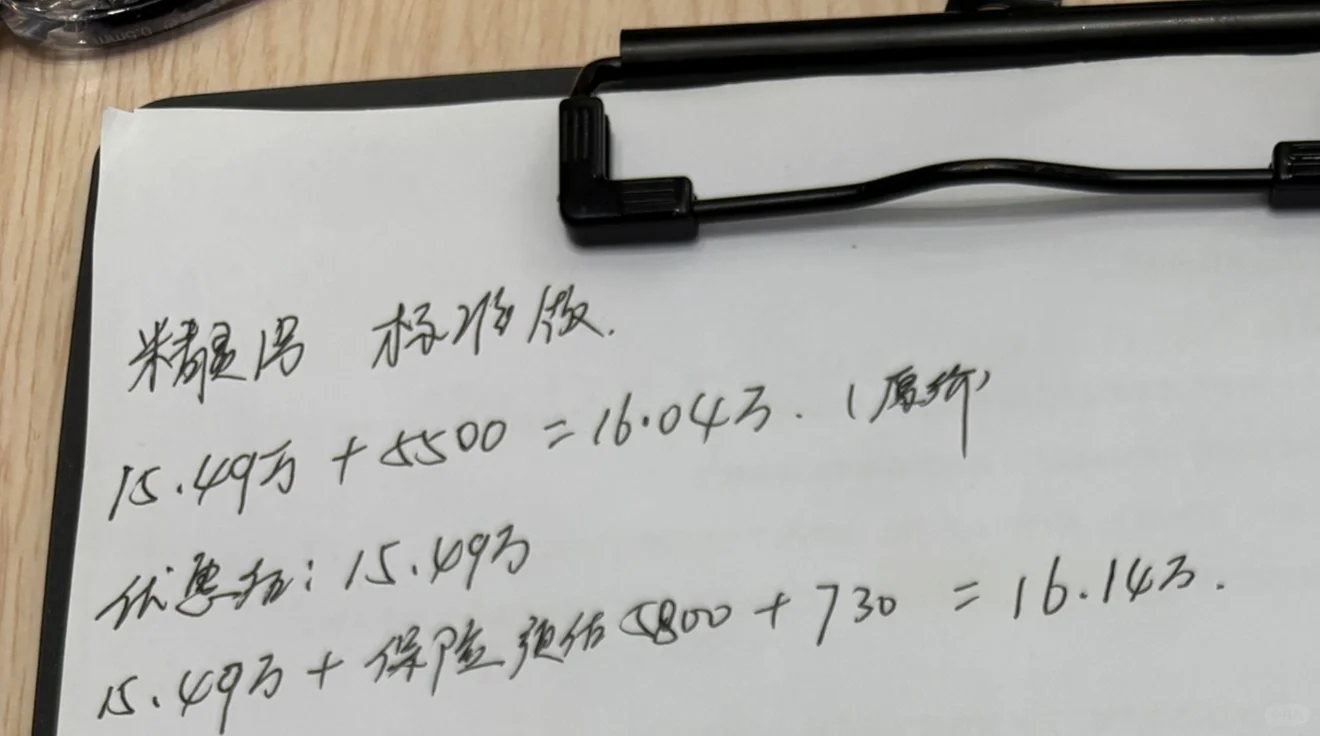 精灵绿 标准版.
15.49万 + 5500 = 16.04万. (原价)
优惠后: 15.49万
15.49万 + 保险预估5800 + 730 = 16.14万.
0.5mm